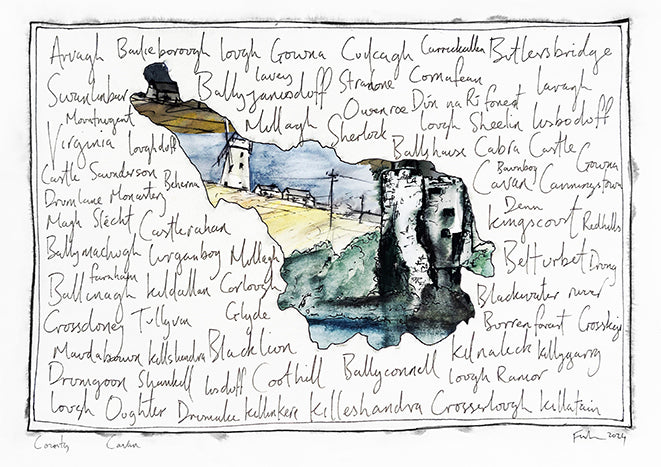 Arvagh Bailieborough Lough Gowna Cuilcagh Curraghatten Butlersbridge
Swanlinbar Ballyjamesduff lavey Stradone Cornafean lavagh
Mountnugent Mullagh Sherlock Owenroe Dún na Rí forest
Virginia loughduff Lough Sheelin lisboduff
Ballyhaise Cabra Castle
Castle Saunderson Behernagh Cavan Bawnboy Gowna
Drumlane Monastery Canningstown
Magh Slécht Castlerahan Denn Kingscourt Redhills
Ballymachugh lurganboy Mullagh Belturbet Drung
Ballinagh farnham kildallan Corlough
Crossdoney Tullyvin Glyde Blackwater river
Burren forest Crosskeys
Maudabawn killeshandra Blacklion
Kilnaleck killygarry
Dromgoon Shankill lisduff Coothill Ballyconnell Lough Ramor
Lough Oughter Drumalee killinkere Killeshandra Crosserlough killatain
County Cavan 2024